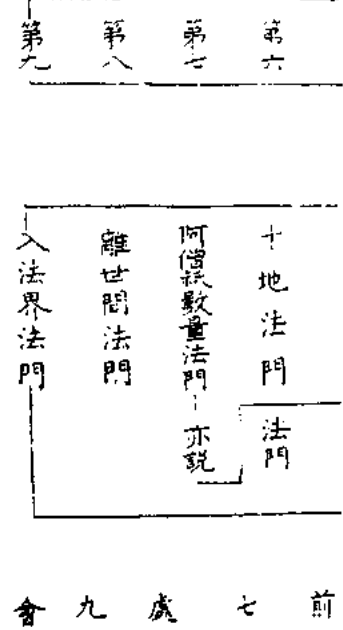 第六
第七
第八
第九
十地法門
法門
阿僧祇數量法門－亦說
離世間法門
入法界法門
前七處九會